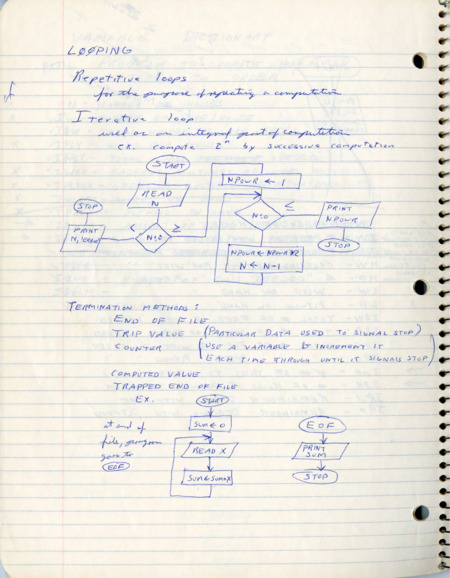 LOOPING
Repetitive loops
for the purpose of repeating a computation
Iterative loop
used as an integral part of computation
ex. compute 2ⁿ by successive computation
START
READ
N
N:0
<
≥
STOP
PRINT
N,
NPOWR ← 1
N:0
≤
PRINT
NPOWR
STOP
NPOWR ← NPOWR*2
N ← N-1
TERMINATION METHODS:
END OF FILE
TRIP VALUE (PARTICULAR DATA USED TO SIGNAL STOP)
COUNTER (USE A VARIABLE & INCREMENT IT
EACH TIME THROUGH UNTIL IT SIGNALS STOP)
COMPUTED VALUE
TRAPPED END OF FILE
EX.
START
SUM ← 0
READ X
SUM ← SUM+X
at end of
file, program
goes to
EOF
EOF
PRINT
SUM
STOP